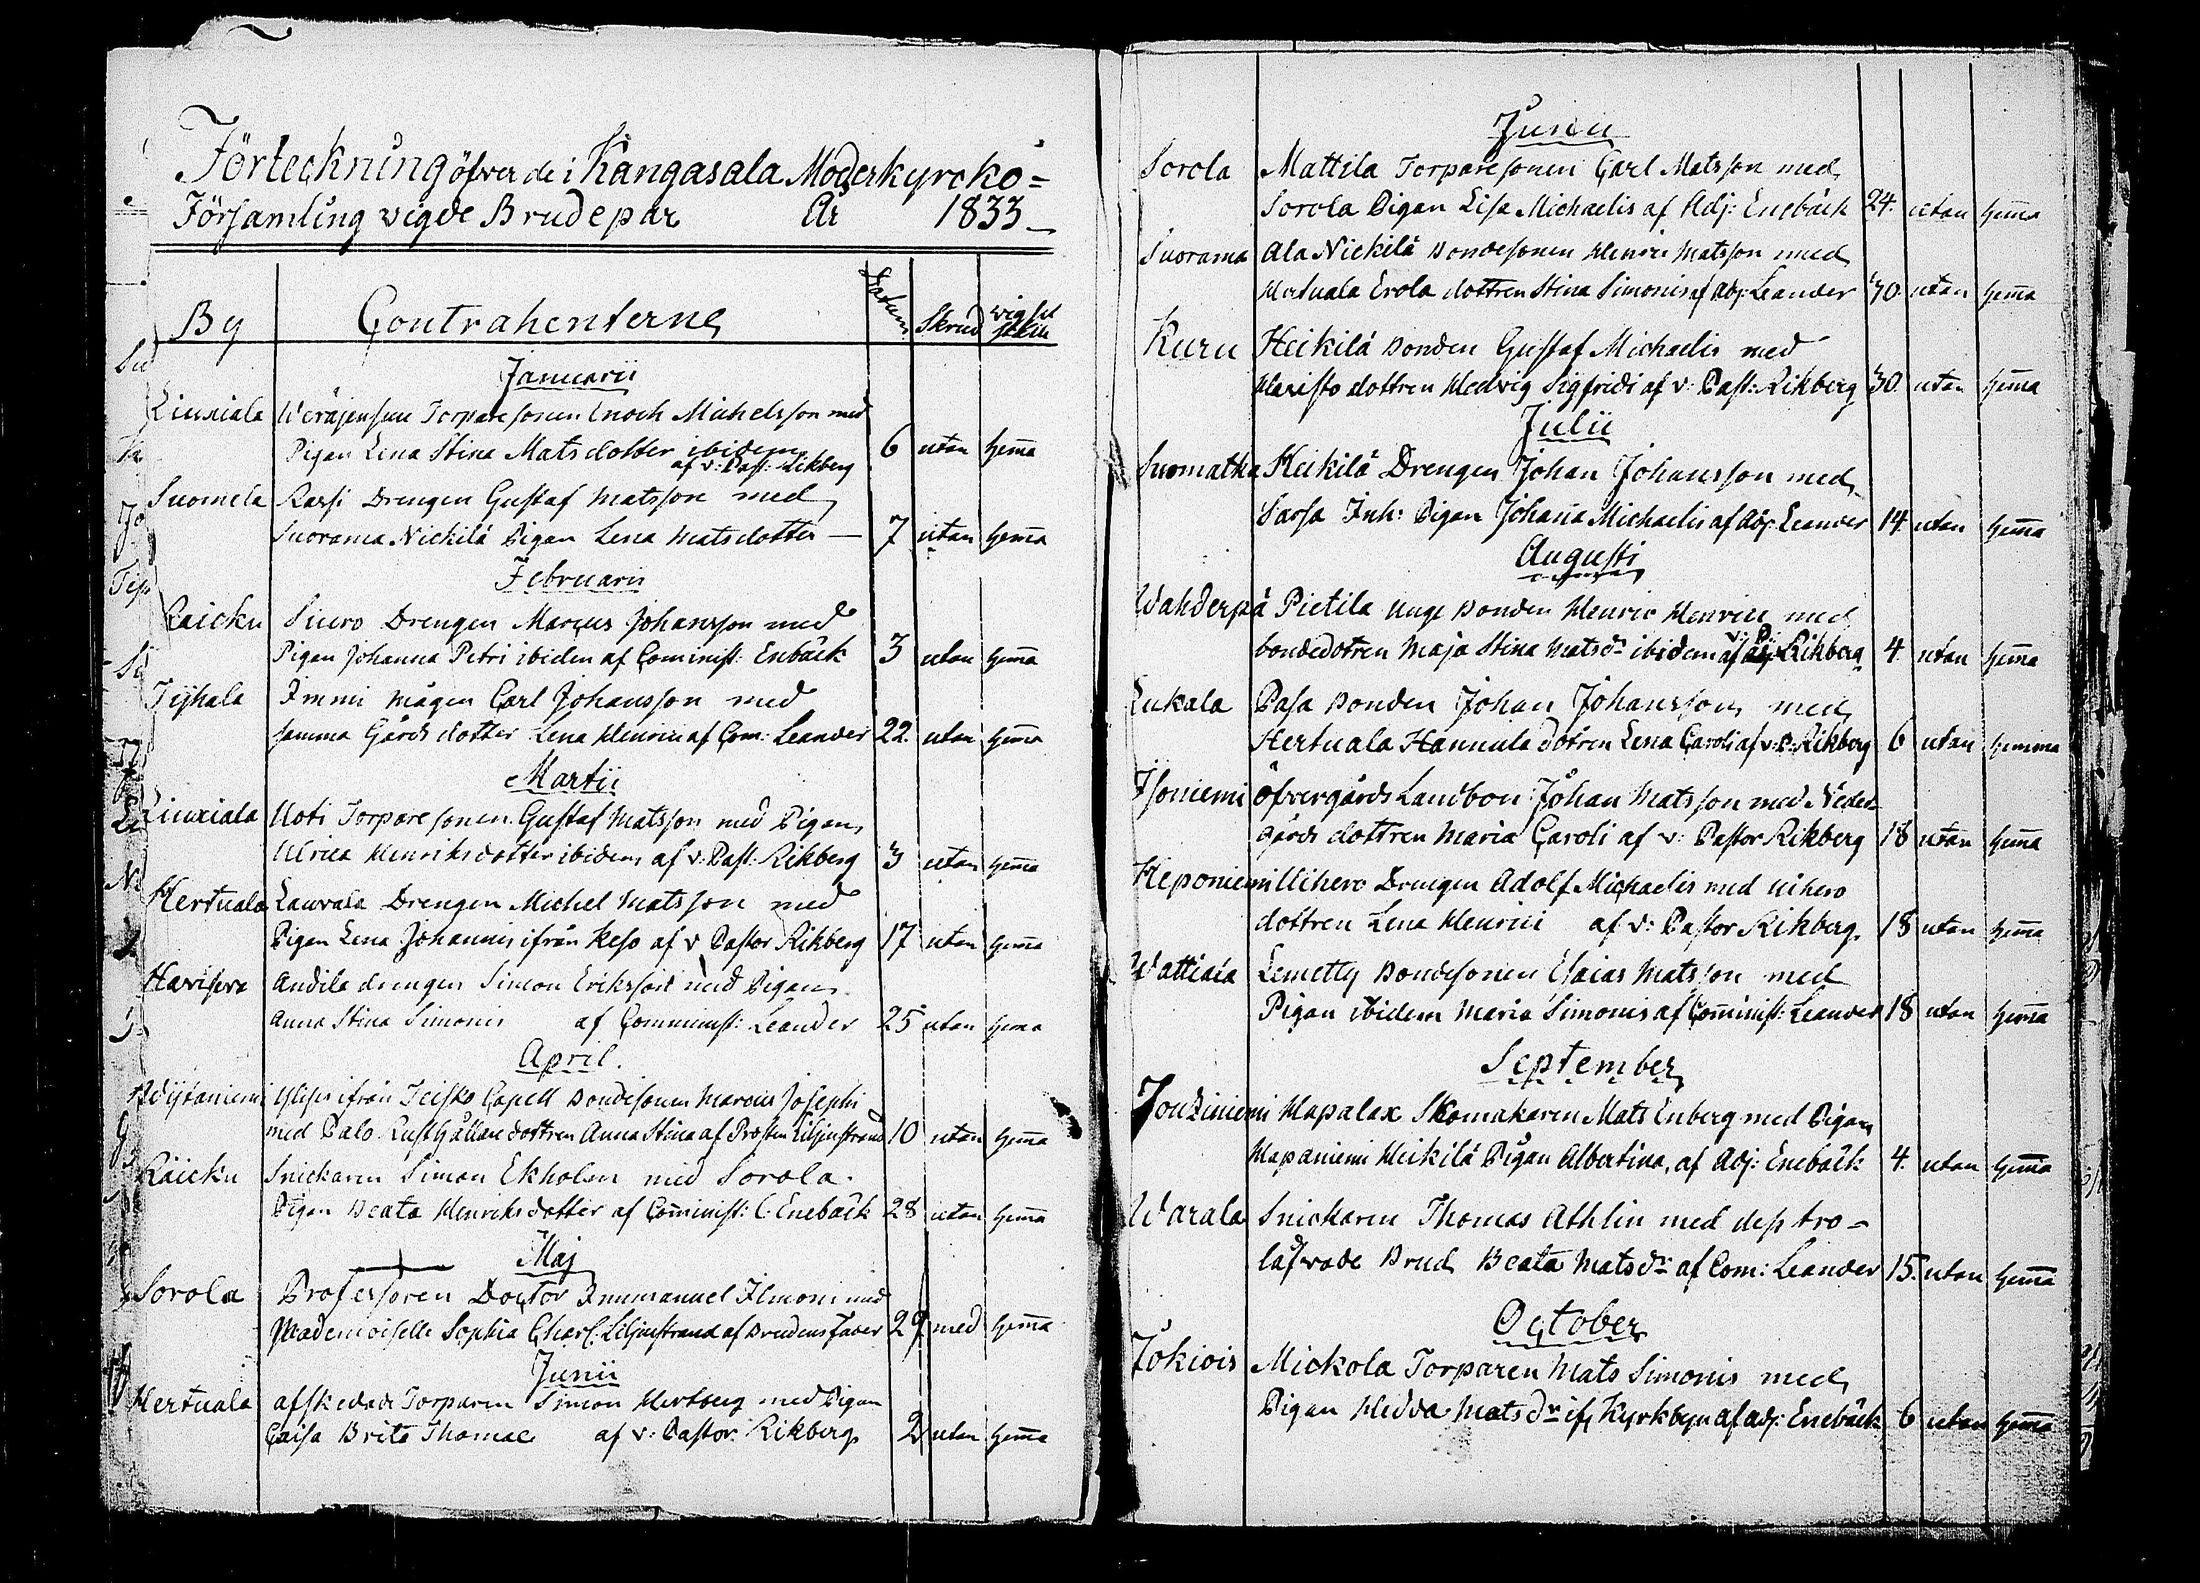 Förteckning öfver de i Kangasala Moderkyrcko=
Församling vigde Brudepar År 1833
By Contrahenterne Datum Skrud vigsel ställe
Januarii
Liuxiala Torparesonen Enoch Michelsson med
Pigan Lena Stina Matsdotter ibidem 6 utan hema
af v: Past: Rikberg
Suomela Rassi Drengen Gustaf Matsson med
Suorama Nickilä Pigan Lena Matsdotter — 7 utan hema
Februarii
Raicku Siuro Drengen Marcus Johansson med
Pigan Johanna Petri ibidem af Cominist: Enebäck 3 utan hema
Tijhala Immi mågen Carl Johansson med
samma Gårds dotter Lena Henrici af Com: Leander 22. utan hema
Martii
Liuxiala Uoti Torparesonen Gustaf Matsson med Pigan
Ulrica Henriksdotter ibidem af v: Past: Rikberg 3 utan hema
Hertuala Laurala Drengen Michel Matsson med
Pigan Lena Johannis ifrån Keso af v Pastor Rikberg 17 utan hema
Havisevo Andila drengen Simon Eriksson med Pigan
Anna Stina Simonis af Comminist: Leander 25 utan hema
April.
ifrån Teisko Capell Bondesonen Marcus Josephi
med Palo Rusthållare dottren Anna Stina af Prosten Liljestrand 10 utan hema
Raicku Snickaren Simon Ekholm med Sorola
Pigan Beata Henriksdotter af Cominist: C. Enebäck 28 utan hema
Maj
Sorola Professoren Doctor Immanuel Ilmoni med
Mademoiselle Sophia Charl. Liljestrand af Brudens Fader 29 med hema
Junii
Hertuala afskedade Torparen Simon Hertberg med Pigan
Caisa Brita Thomae af v: Pastor Rikberg 2 utan hema
Junii
Sorola Mattila Torparesonen Carl Matsson med
Sorola Pigan Lisa Michaelis af Adj: Enebäck 24. utan hema
Suorama Ala Nickilä Bondesonen Henric Matsson med
Hertuala Erola dottren Stina Simonis af Adj: Leander 30. utan hema
Kuru Heikilä Bonden Gustaf Michaelis med
Havisto dottren Hedvig Sigfridi af v: Past: Rikberg 30. utan hema
Julii
Suomatka Heikilä Drengen Johan Johansson med
Sarsa Inh: Pigan Johana Michaelis af Adj: Leander 14. utan hema
Augusti
Wahderpä Pietila unge Bonden Henric Henrici med
bondedotren Maja Stina Matsdr ibidem af v: P: Rikberg 4. utan hema
Lukala Pasa Bonden Johan Johansson med
Hertuala Hannula dotren Lena Caroli af v: P: Rikberg 6 utan hemma
Isoniemi Öfvergårds Landbon Johan Matsson med Neder-
gårds dottren Maria Caroli af v: Pastor Rikberg 18 utan hema
Heponiemi Uihero Drengen Adolf Michaelis med Uihero
dottren Lena Henrici af v: Pastor Rikberg. 18 utan hema
Wattiala Lemetty Bondesonen Esaias Matsson med
Pigan ibidem Maria Simonis af Cominist: Leander 18 utan hema
September
Jouziniemi Hapalax Skomakaren Mats Enberg med Pigan
Hapaniemi Heikilä Pigan Albertina, af Adj: Enebäck 4. utan hema
Warala Snickaren Thomas Athlin med dess tro-
låfvade Brud Beata Matsdr af Com: Leander 15. utan hema
October
Jokiois Mickola Torparen Mats Simonis med
Pigan Hedda Matsdr if. Kyrkbyn af Adj: Enebäck 6 utan hema